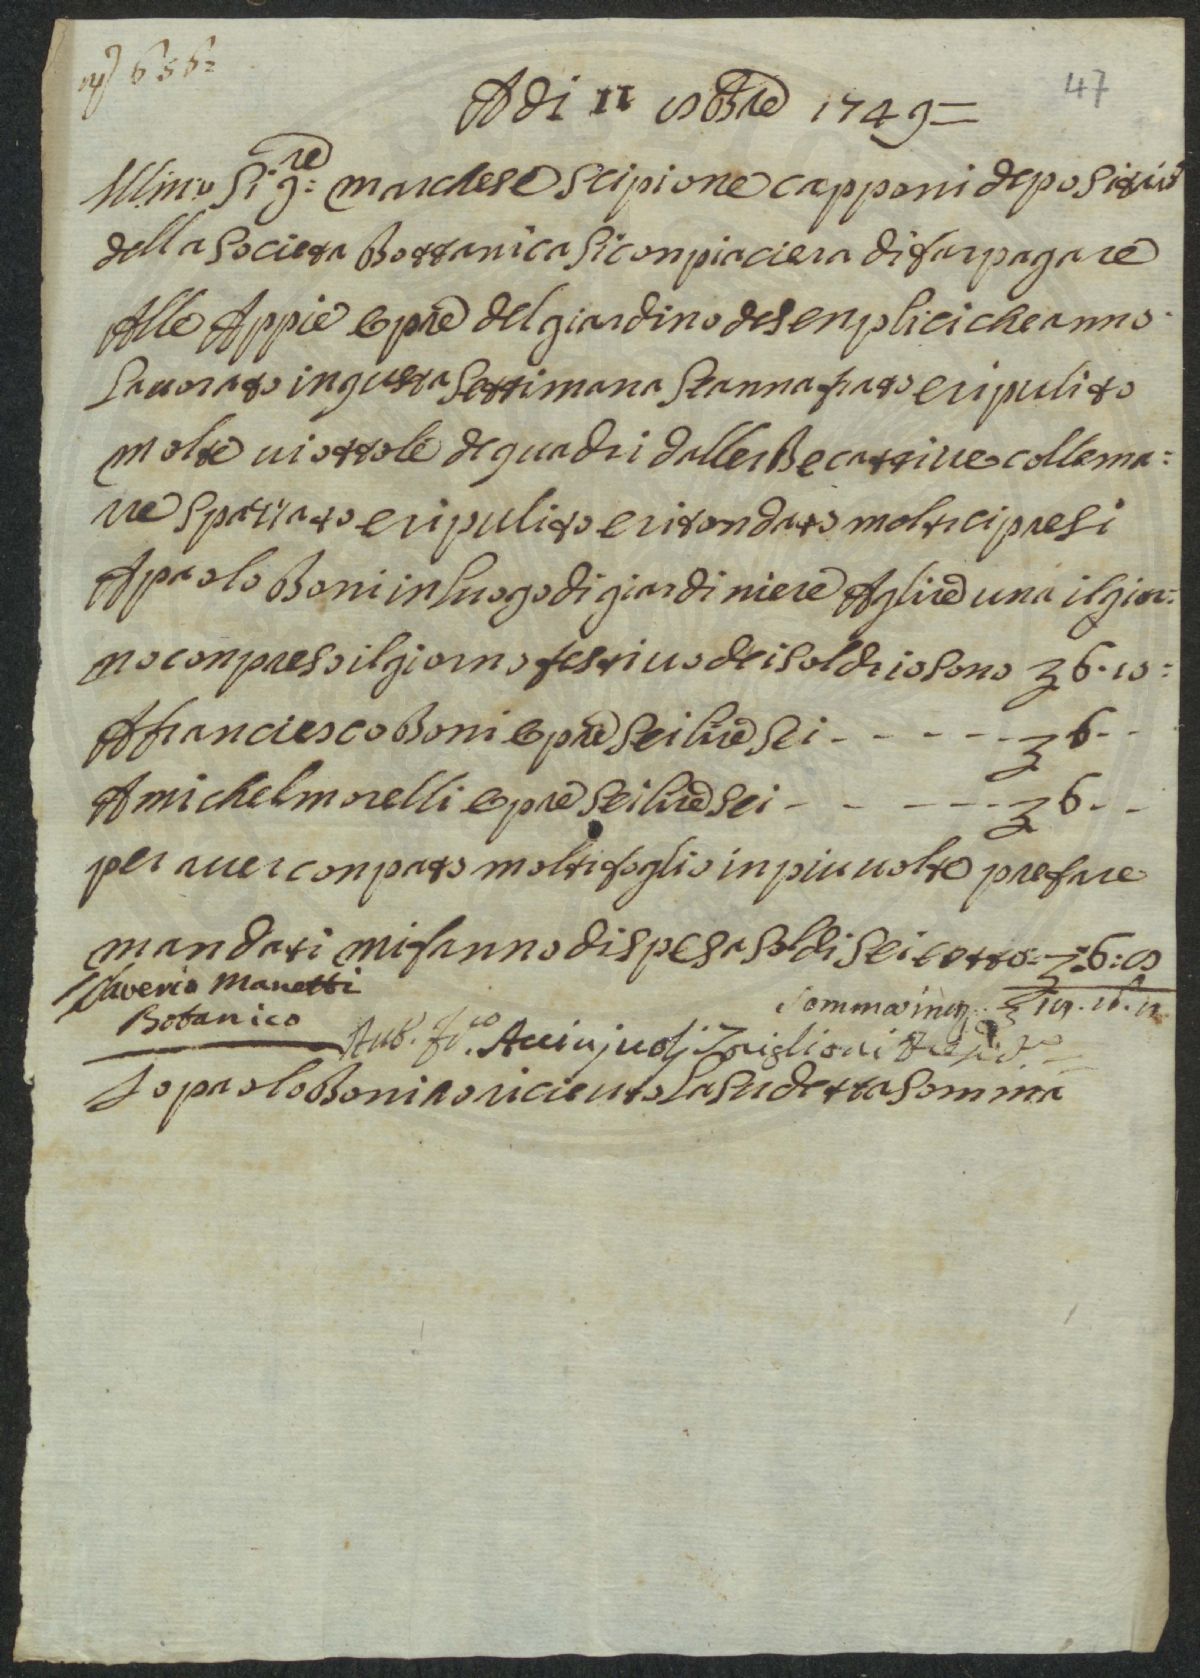 656=
47
Adi 11 8Bre 1749=
Illmo Sigre: marchese scipione capponi depositrio
della Societa Bottanica si conpiaciera di far pagare
Alle Appie epre del giardino desenplici che anno
lauorato in questa settimana Seanna frato e ripulito
molte uiottole de quadri dallerBe cattiue colle ma:
re spatiato e ripulito e ritondato molti cipresi
A paolo Boni in luogo di giardiniere A glire una il gior:
no conpreso il giorno festiuo dei soldi 10 sono 6.10:
A franciesco Boni epre sei lire sei - - - - - 6 - -
A michel morelli epre sei lire sei - - - - - 6 - -
per auer conprato molti foglio in piu uolte pre fare
mandati mi fanno di spesa soldi sei e otto 6:8
Saverio Manetti
Botanico
Somma
19.16.
Acciajuoli
Io paolo Boni o riceuto la sudetta somma